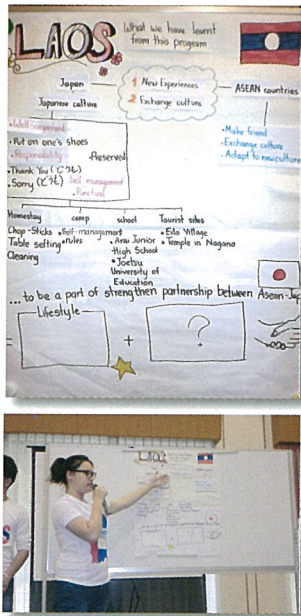 LAOS
What we have learnt
from this program
Japan
1 New Experiences
2 Exchange culture
ASEAN countries
Japanese culture
• Well organized
• Put on one's shoes
• Responsibility
• Reserved
• Thank You (どうも)
• Sorry (どうも)
Self management
• Punctual
• Make friend
• Exchange culture
• Adapt to new culture
Homestay camp school Tourist sites
Chop-Sticks
Table setting
Cleaning
• Self-management
• rules
• Arai Junior
High School
• Joetsu
University of
Education
• Edo Village
• Temple in Nagano
...to be a part of strengthen partnership between Asean-Jap
Lifestyle
+
?
=
LAOS